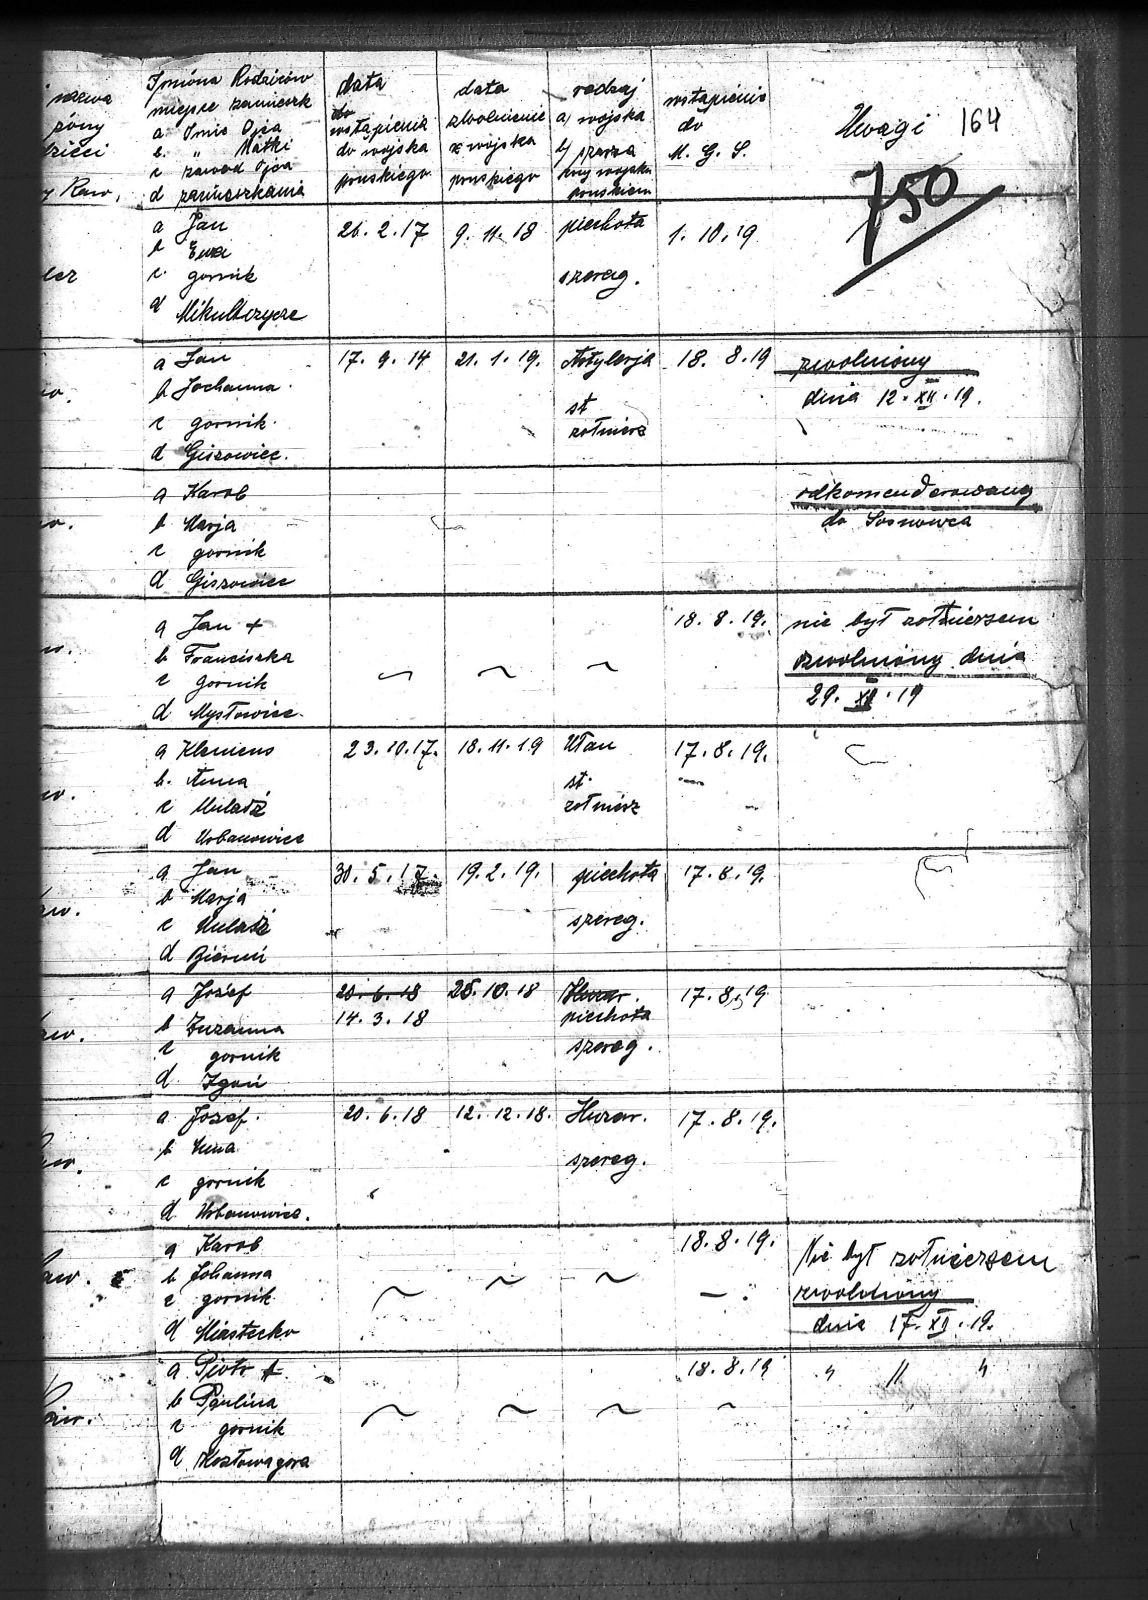 nazwa
żony
dzieci
y Kaw,
Imióna Rodziców
miejsce zamieszk
a Imie Ojca
b. " Matki
c zawod Ojca
d zamieszkania
data
do
wstąpienia
do wojska
pruskiego
data
zwolnienie
z wojska
pruskiego
rodzaj
a) wojska
b) szarza
przy wojsku
pruskiem
wstąpienie
do
M. G. S.
Uwagi 164
750
a Jan
b Ewa
c gornik
d Mikulczyce
26. 2. 17
9. 11. 18
piechota
szereg.
1. 10. 19
a Jan
b Jochanna
c gornik
d Giszowiec.
17. 9. 14
21. 1. 19.
Artylerja
st
żołnierz
18. 8. 19
zwolniony
dnia 12. XII. 19.
w.
a Karol
b Marja
c gornik
d Giszowiec
odkomenderowany
do Sosnowca
w.
a Jan +
b Franciszka
c gornik
d Mysłowice.
18. 8. 19.
nie był żołnierzem
zwolniony dnia
29. XI. 19
w.
a Klemens
b. Anna
c
d Urbanowice
23. 10. 17.
18. 11. 19
Ułan
st.
żołnierz
17. 8. 19.
w.
a Jan
b Marja
c
d Bieruń
30. 5. 17.
19. 2. 19.
piechota
szereg.
17. 8. 19.
aw.
a Józef
b Zuzanna
c gornik
d Zgoń
20. 6. 18
14. 3. 18
25. 10. 18
Huzar.
piechota
szereg.
17. 8. 19
aw.
a Jozef.
b Anna
c gornik
d Urbanowice.
20. 6. 18
12. 12. 18.
Huzar.
szereg.
17. 8. 19.
aw.
a Karol
b Johanna
c gornik
d Miastecko
18. 8. 19.
Nie był żołnierzem
zwolniony
dnia 17. XII. 19.
aw.
a Piotr +
b Paulina
c gornik
d Kozłowagora
18. 8. 19
" " "